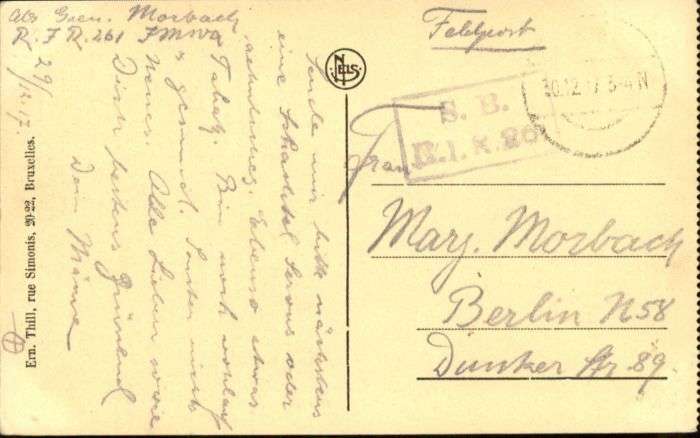 Abs Gren. Morbach
R. J R. 261
29/12.17
Sende mir bitte nächstens
eine Schachtel Servus oder
ähnliches. Ebenso etwas
Tabak. Bin noch wohlauf
u. gesund. Sonst nichts
Neues. Alle Lieben sowie
Dich bestens grüßend
Dein Männe
Ern. Thill, rue Simonis, 20-22, Bruxelles.
NELS
Feldpost
S. B.
30.12.17 3-4 N
Frau
Marg. Morbach
Berlin N 58
Dunker Str. 89.